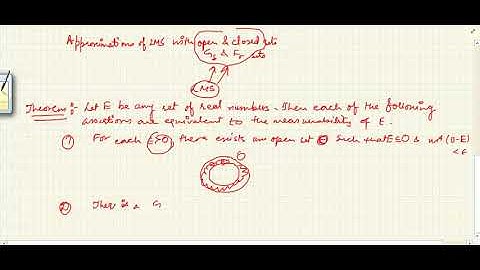 Approximations of LMS with open & closed sets
Gδ & Fσ sets
LMS
Theorem: Let E be any set of real numbers. Then each of the following
assertions are equivalent to the measurability of E.
① For each ε>0, there exists an open set O such that E⊆O & m*(O-E)
<ε
O
② There is a G